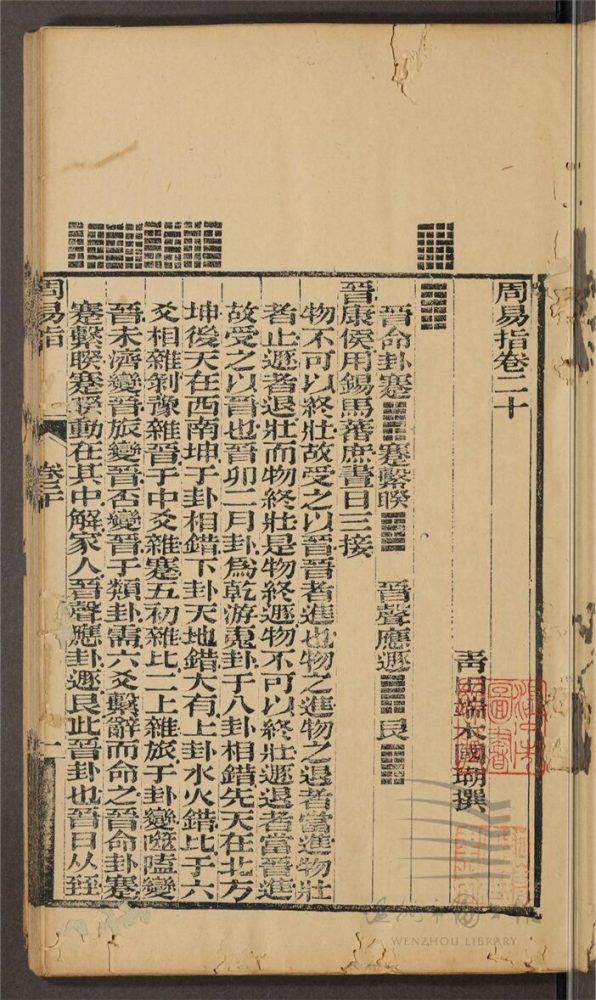 周易指卷二十
青田端木國瑚撰
晉命卦蹇 蹇繫睽 晉聲應遯 艮
晉康侯用錫馬蕃庶晝日三接
物不可以終壯故受之以晉晉者進也物之進物之退者當進物壯
者止遯者退壯而物終壯是物終遯物不可以終壯遯退者當晉進
故受之以晉也晉卯二月卦爲乾游䰟卦于八卦相錯先天在北方
坤後天在西南坤于卦相錯下卦天地錯大有上卦水火錯比于六
爻相雜剝豫雜晉于中爻雜蹇五初雜比二上雜旅于卦變噬嗑變
晉未濟變晉旅變晉否變晉于類卦需六爻繫辭而命之晉命卦蹇
蹇繫睽蹇睽動在其中解家人晉聲應卦遯艮此晉卦也晉日从臸
周易指
卷二十
一
WENZHOU LIBRARY